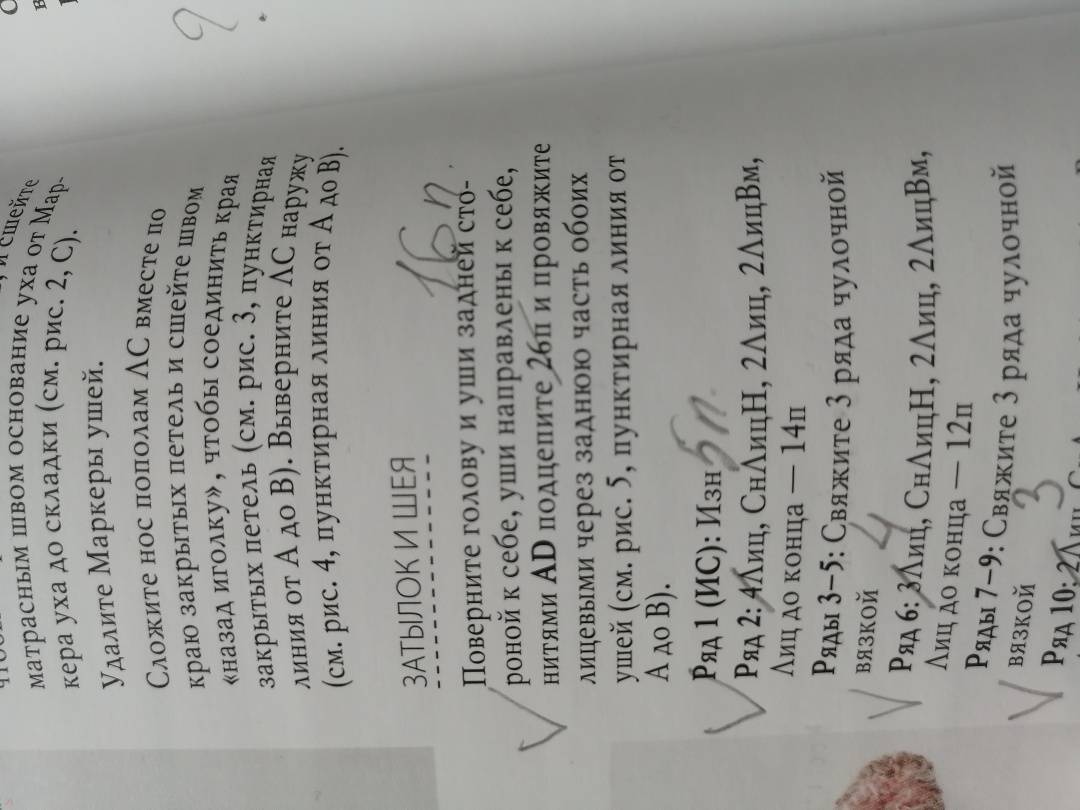 ?
и сшейте
матрасным швом основание уха от Мар-
кера уха до складки (см. рис. 2, С).
Удалите Маркеры ушей.
Сложите нос пополам ЛС вместе по
краю закрытых петель и сшейте швом
«назад иголку», чтобы соединить края
закрытых петель (см. рис. 3, пунктирная
линия от А до В). Выверните ЛС наружу
(см. рис. 4, пунктирная линия от А до В).
ЗАТЫЛОК И ШЕЯ
16п.
Поверните голову и уши задней сто-
роной к себе, уши направлены к себе,
нитями AD подцепите 26п и провяжите
лицевыми через заднюю часть обоих
ушей (см. рис. 5, пунктирная линия от
А до В).
Ряд 1 (ИС): Изн
5п.
Ряд 2: 4Лиц, СнЛицН, 2Лиц, 2ЛицВм,
Лиц до конца — 14п
Ряды 3–5: Свяжите 3 ряда чулочной
вязкой
4
Ряд 6: 3Лиц, СнЛицН, 2Лиц, 2ЛицВм,
Лиц до конца — 12п
Ряды 7–9: Свяжите 3 ряда чулочной
вязкой
3
Ряд 10: 2Лиц